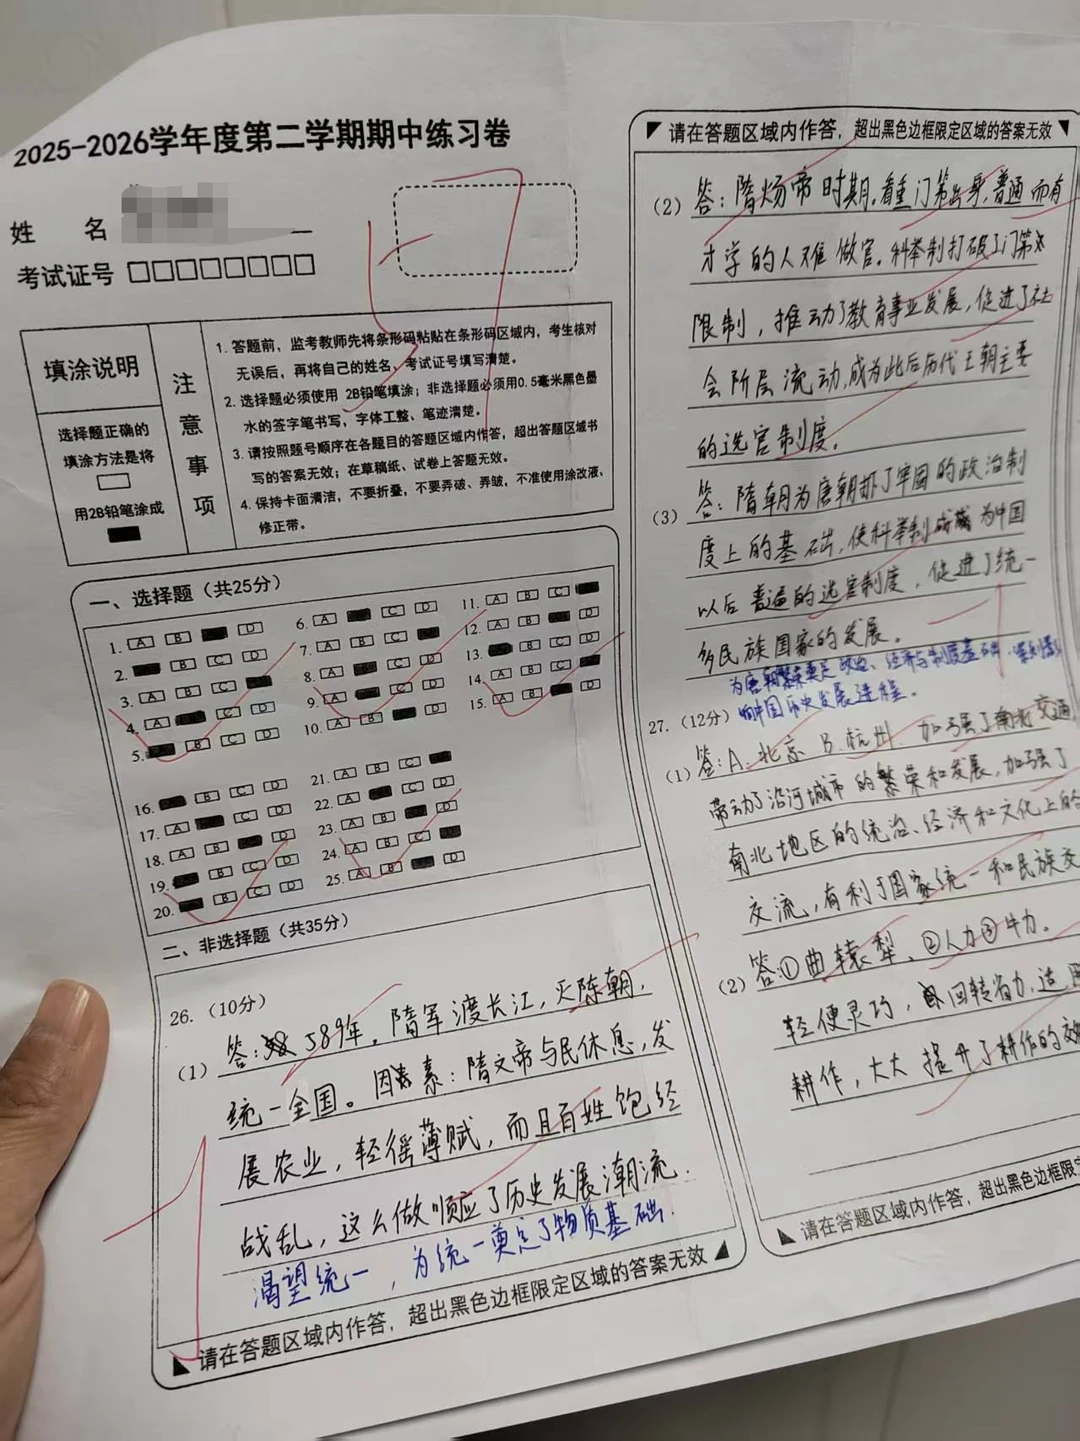 2025-2026学年度第二学期期中练习卷
姓 名
考试证号
57
填涂说明
选择题正确的
填涂方法是将
用2B铅笔涂成
注意事项
1. 答题前，监考教师先将条形码粘贴在条形码区域内，考生核对
无误后，再将自己的姓名、考试证号填写清楚。
2. 选择题必须使用 2B铅笔填涂；非选择题必须用0.5毫米黑色墨
水的签字笔书写，字体工整、笔迹清楚。
3. 请按照题号顺序在各题目的答题区域内作答，超出答题区域书
写的答案无效；在草稿纸、试卷上答题无效。
4. 保持卡面清洁，不要折叠，不要弄破、弄皱，不准使用涂改液、
修正带。
一、选择题（共25分）
1. A B D
2. B C D
3. A B C
4. A C D
5. B C D
6. A C D
7. A B C
8. A C D
9. A C D
10. A B D
11. A B C
12. A B D
13. B C D
14. A B C
15. A B D
16. B C D
17. A C D
18. A B D
19. B C D
20. B C D
21. A B C
22. A C D
23. A B D
24. A B C
25. A B D
二、非选择题（共35分）
26. （10分）
(1) 答: 589年，隋军渡长江，灭陈朝，
统一全国。因素：隋文帝与民休息，发
展农业，轻徭薄赋，而且百姓饱经
战乱，这么做顺应了历史发展潮流.
渴望统一，为统一奠定了物质基础.
-1
请在答题区域内作答，超出黑色边框限定区域的答案无效
请在答题区域内作答，超出黑色边框限定区域的答案无效
(2) 答：隋炀帝时期，看重门第出身，普通而有
才学的人难做官。科举制打破了门第
限制，推动了教育事业发展，促进了社
会阶层流动，成为此后历代王朝主要
的选官制度。
(3) 答：隋朝为唐朝打了牢固的政治制
度上的基础，使科举制成为中国
以后普遍的选官制度，促进了统一
多民族国家的发展。
-1
为唐朝繁荣奠定政治、经济与制度基础，深刻影
响中国历史发展进程。
27. （12分）
(1) 答：A. 北京 B. 杭州. 加强了南北交通
带动了沿河城市的繁荣和发展，加强了
南北地区的统治、经济和文化上的
交流，有利于国家统一和民族交
(2) 答:①曲辕犁、②人力③牛力.
轻便灵巧，回转省力，适用
耕作，大大提升了耕作的效
请在答题区域内作答，超出黑色边框限定